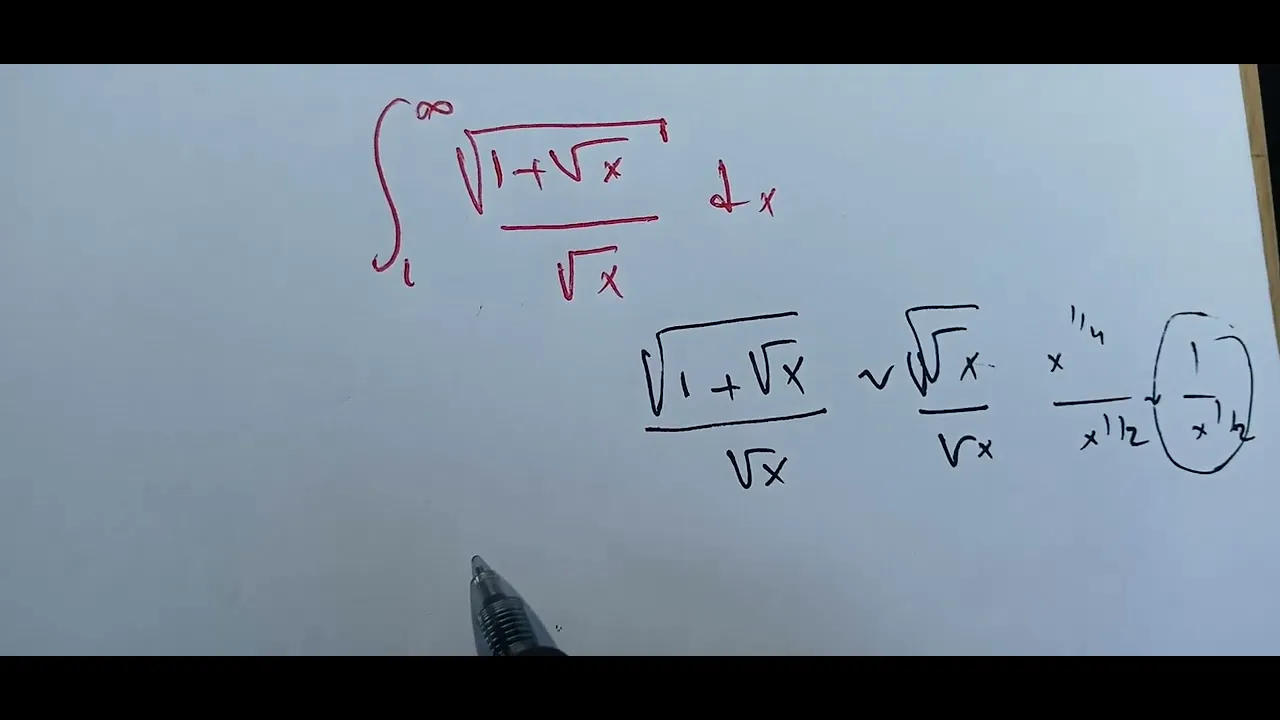 ∫₁^∞ √(1+√x) / √x dx
√(1+√x) / √x ~ √(√x) / √x x^1/4 / x^1/2 ~ 1 / x^1/2